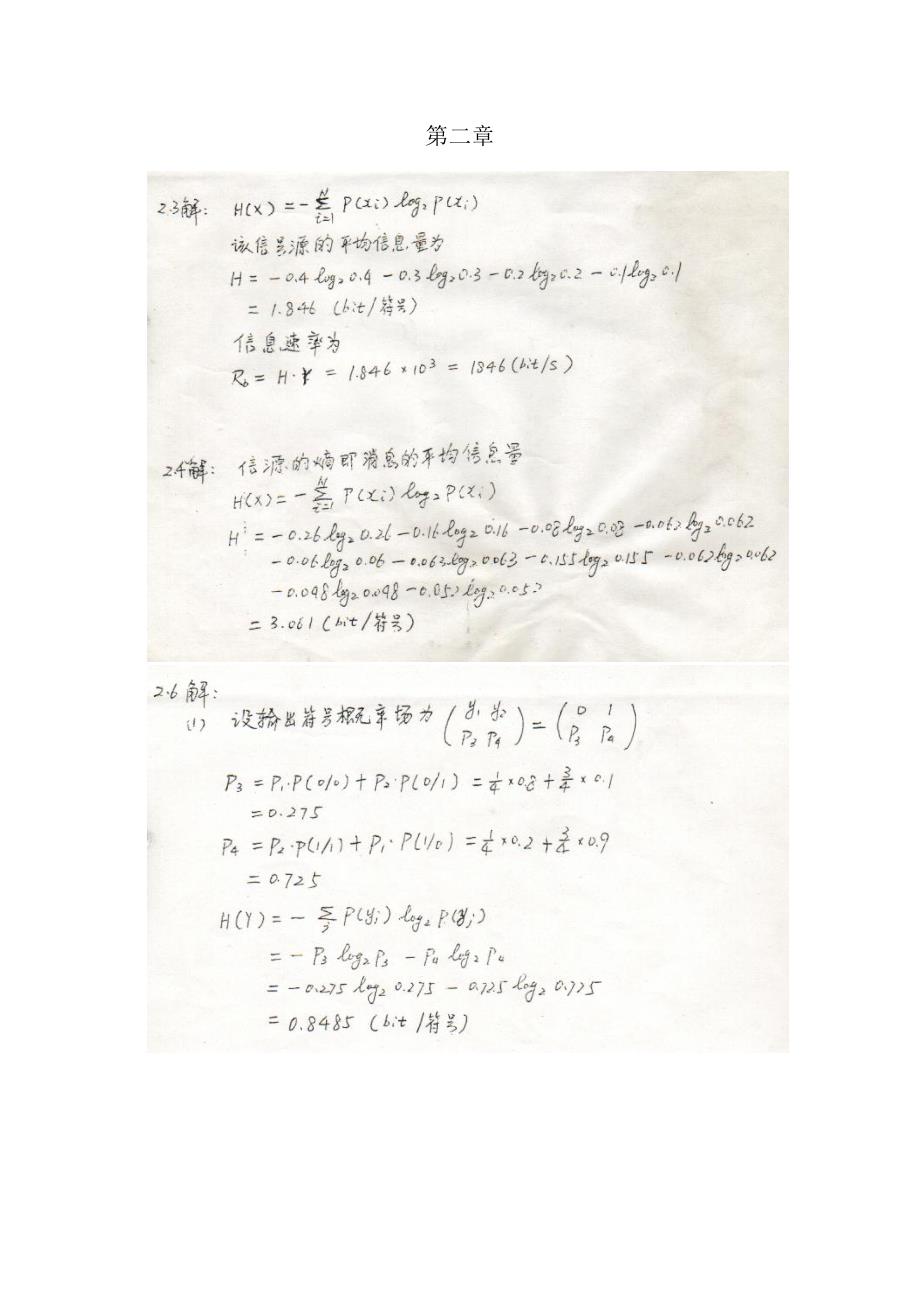 第二章
2.3解: H(X) = -∑_{i=1}^{N} P(xi) log₂ P(xi)
该信号源的平均信息量为
H = -0.4 log₂ 0.4 - 0.3 log₂ 0.3 - 0.2 log₂ 0.2 - 0.1 log₂ 0.1
= 1.846 (bit/符号)
信息速率为
R_b = H·r = 1.846 × 10³ = 1846 (bit/s)
2.4解: 信源的熵即消息的平均信息量
H(X) = -∑_{i=1}^{N} P(xi) log₂ P(xi)
H = -0.26 log₂ 0.26 - 0.16 log₂ 0.16 - 0.08 log₂ 0.08 - 0.062 log₂ 0.062
- 0.06 log₂ 0.06 - 0.063 log₂ 0.063 - 0.155 log₂ 0.155 - 0.062 log₂ 0.062
- 0.048 log₂ 0.048 - 0.052 log₂ 0.052
= 3.061 (bit/符号)
2.6 解:
(1) 设输出符号概率场为 (y₁ y₂ / P₃ P₄) = (0 1 / P₃ P₄)
P₃ = P₁·P(0/0) + P₂·P(0/1) = 1/4 × 0.8 + 3/4 × 0.1
= 0.275
P₄ = P₂·P(1/1) + P₁·P(1/0) = 1/4 × 0.2 + 3/4 × 0.9
= 0.725
H(Y) = -∑_j P(yj) log₂ P(yj)
= -P₃ log₂ P₃ - P₄ log₂ P₄
= -0.275 log₂ 0.275 - 0.725 log₂ 0.725
= 0.8485 (bit/符号)